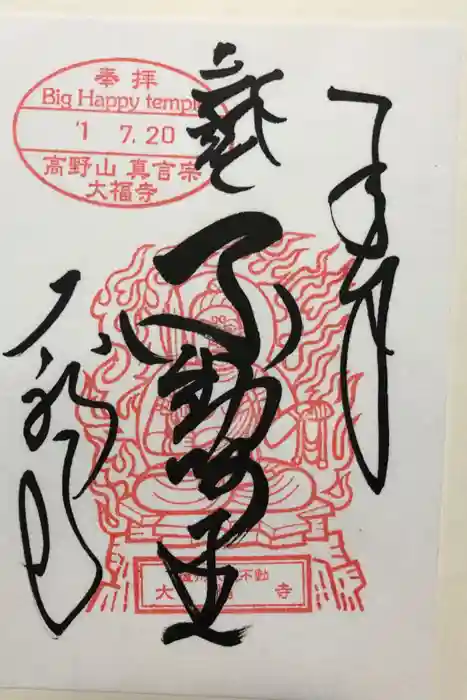 奉拝
Big Happy temple
'1 7.20
高野山 真言宗
大福寺
奉拝
不動明王
大福寺
不動
大 寺